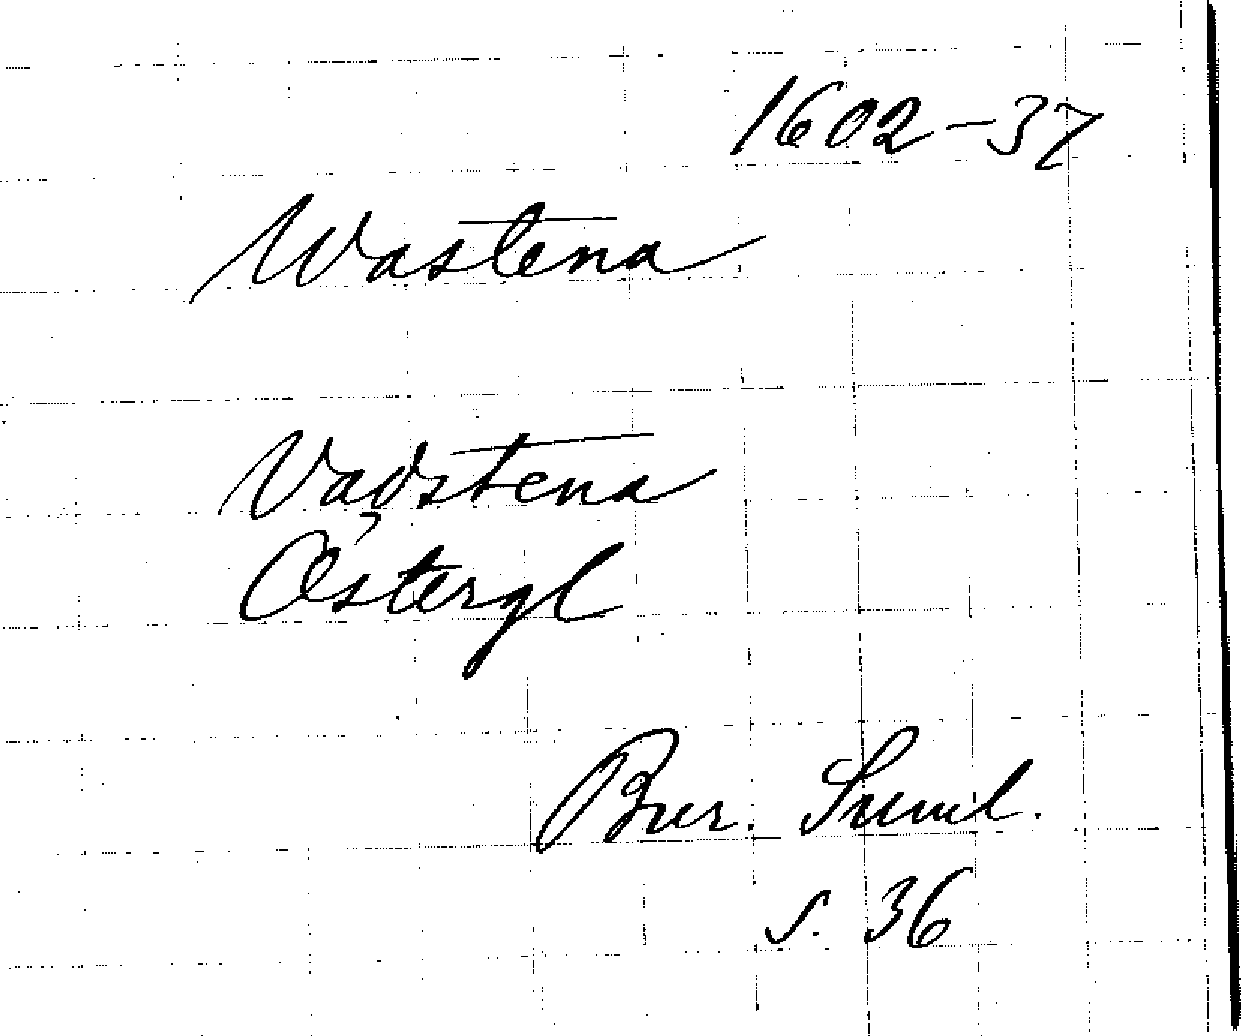 1602-37
Wastena
Vadstena,
Östergl
Bur. Suml.
s. 36